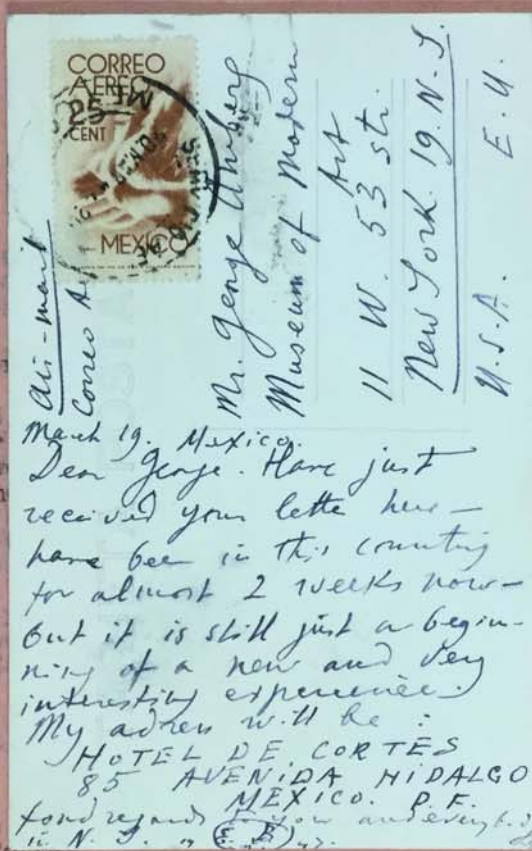 CORREO
AEREO
25
CENT
MEXICO
Air-mail
Correo
Mr. George Amberg
Museum of Modern
Art
11 W. 53 str.
New York. 19. N.Y.
U.S.A. E.U.
March 19. Mexico.
Dear George. Have just
received your letter here –
have been in this country
for almost 2 weeks now –
but it is still just a begin-
ning of a new and very
interesting experience.
My adress will be :
HOTEL DE CORTÉS
85 AVENIDA HIDALGO
MÉXICO. D.F.
fond regards to you and everybody
in N.Y.